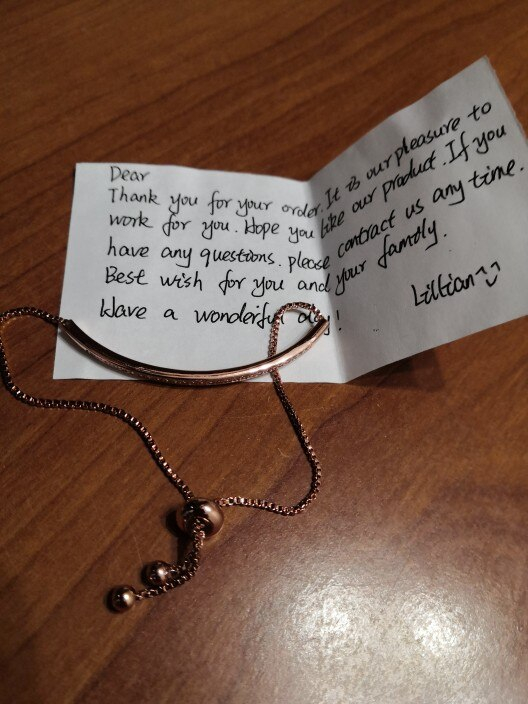 Dear
Thank you for your order. It is our pleasure to
work for you. Hope you like our product. If you
have any questions. please contract us any time.
Best wish for you and your famoly.
Have a wonderful day!
Lillian^⌣